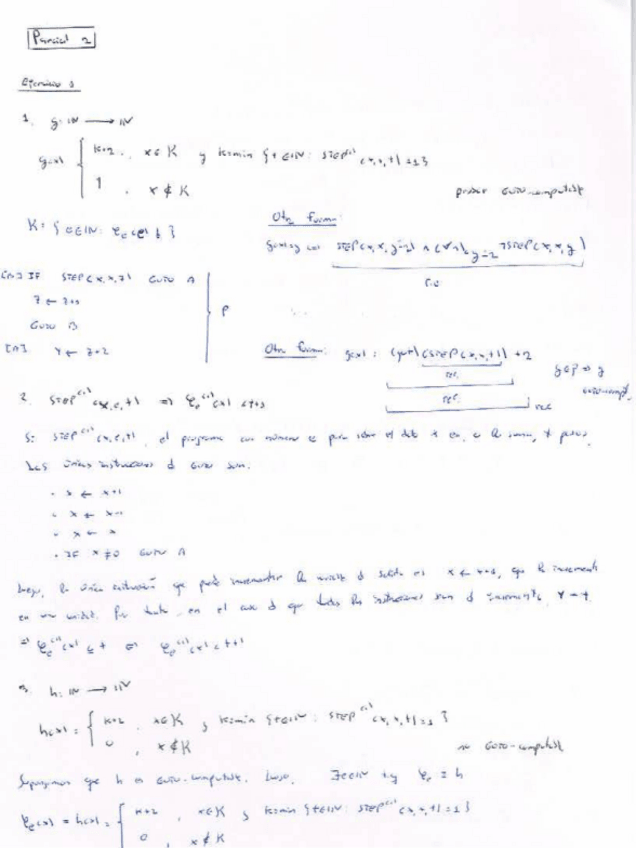 Parcial 2
Ejercicio 1
1. g: ℕ → ℕ
g(x) = { k+2, x ∈ K y k = min { t ∈ ℕ : STEP⁽¹⁾(x,x,t) = 1 }
1, x ∉ K
probar GOTO-computable
K = { e ∈ ℕ : φe(e) ↓ }
Otra forma:
g(x) = y STEP(x, x, y-2) ∧ (∀n) y-2 ¬STEP(x, x, y)
[B] IF STEP(x, x, z) GOTO A
z ← z+1
GOTO B
[A] Y ← z+2
P
Otra forma: g(x) = (μt) (STEP(x,x,t)) + 2
rec.
rec.
rec
2. STEP⁽¹⁾(x,e,t) ⇒ φe⁽¹⁾(x) < t+1
Si STEP⁽¹⁾(x,e,t), el programa con número e para con el dato x en, a lo sumo, t pasos.
Las únicas instrucciones de GOTO son:
· x ← x+1
· x ← x-1
· x ← x
· IF x ≠ 0 GOTO A
Luego, la única instrucción que puede incrementar la variable de salida es x ← x+1, que la incrementa
en una unidad. Por tanto, en el caso de que todas las instrucciones sean de incremento, Y = t
⇒ φe⁽¹⁾(x) ≤ t ⇔ φe⁽¹⁾(x) < t+1
3. h: ℕ → ℕ
h(x) = { k+2, x ∈ K y k = min { t ∈ ℕ : STEP⁽¹⁾(x,x,t) = 1 }
0, x ∉ K
no GOTO-computable
Supongamos que h es GOTO-computable. Luego, ∃e ∈ ℕ t.q φe = h
φe(x) = h(x) = { k+2, x ∈ K y k = min { t ∈ ℕ : STEP⁽¹⁾(x,x,t) = 1 }
0, x ∉ K